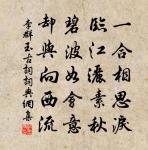 一合相思淚
臨江灑素秋
碧波如會意
却與向西流
李群玉古詞詞典網集